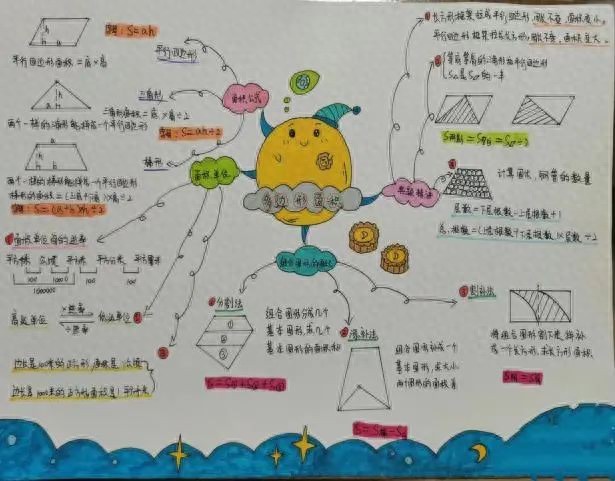 多边形面积
面积公式
平行四边形
S=ah
平行四边形面积=底×高
三角形
三角形面积=底×高÷2
两个一样的三角形能拼成一个平行四边形
S=ah÷2
梯形
两个一样的梯形能拼成一个平行四边形
梯形的面积=(上底+下底)×高÷2
S=(a+b)×h÷2
面积单位
①面积单位间的进率
平方米 公顷 平方千米
100 100 100
1000000
高级单位
×进率
÷进率
低级单位
边长是100米的正方形面积是1公顷
边长是1000米的正方形面积是1平方千米
组合图形的面积
①分割法
①
②
③
组合图形分成几个
基本图形,求几个
基本图形的面积和
S=S①+S②+S③
②添补法
组合图形补成一个
基本图形,求大小
两个图形的面积差
③割补法
将组合图形割下是,移补
成一个长方形,求长方形面积
长方形框架拉成平行四边形,周长不变,面积变小。
平行四边形框架拉成长方形,周长不变,面积变大。
等底等高的三角形和平行四边形
计算圆木、钢管的层数
层数=下层根数-上层根数+1
总根数=(上层根数+下层根数)×层数÷2